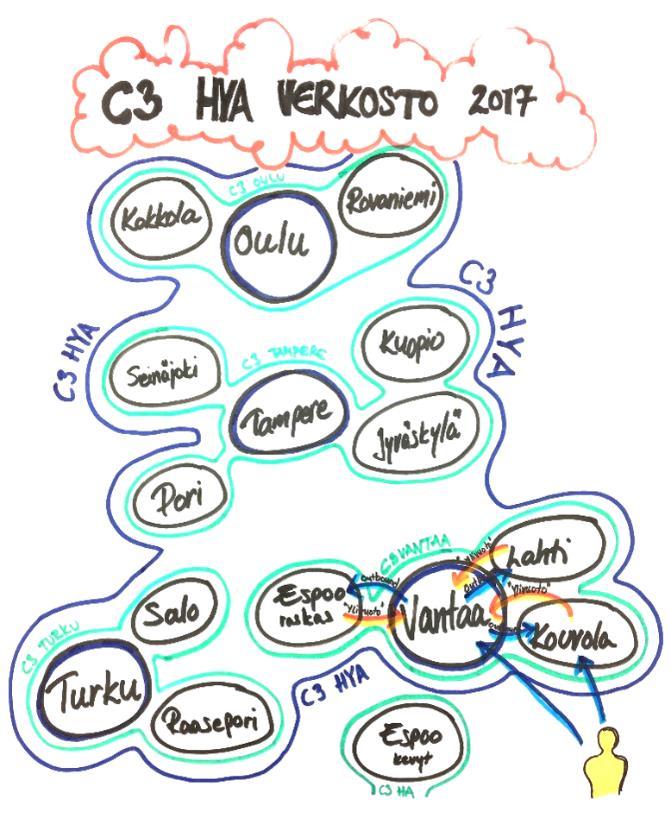 C3 HYA VERKOSTO 2017
C3 OULU
Kokkola
Oulu
Rovaniemi
C3 HYA
C3 HYA
Seinäjoki
C3 TAMPERE
Kuopio
Tampere
Jyväskylä
Pori
C3 VANTAA
Lahti
"Ylivuoto"
outbound
Espoo
raskas
outbound
"Ylivuoto"
Vantaa
"Ylivuoto"
Kouvola
Salo
C3 TURKU
Turku
Raasepori
C3 HYA
Espoo
kevyt
C3 HA